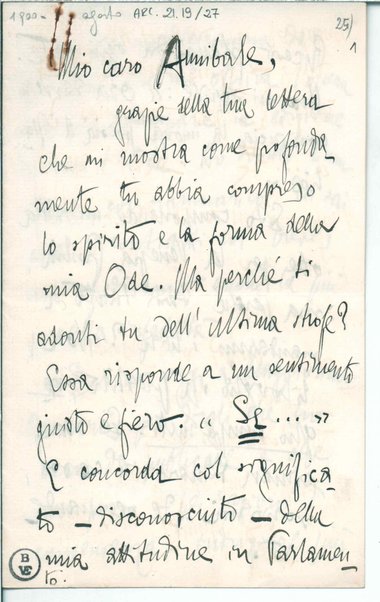 1900 - agosto ARC. 21.19/27
25/1
Mio caro Annibale,
grazie della tua lettera
che mi mostra come profonda-
mente tu abbia compreso
lo spirito e la forma della
mia Ode. Ma perché ti
adonti tu dell'ultima strofe?
Essa risponde a un sentimento
giusto e fiero. " Se .... "
E concorda col significa-
to - disconosciuto - della
mia attitudine in Parlamen-
to.
B
VE